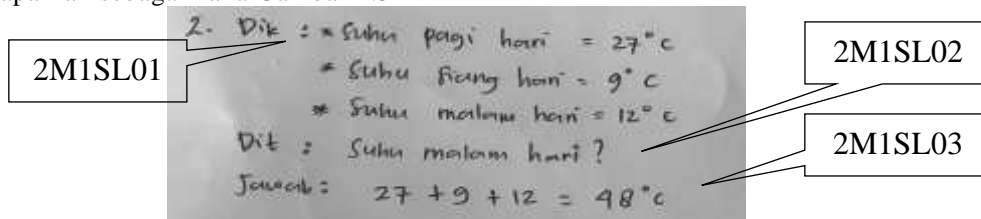 2. Dik : * Suhu pagi hari = 27°c
* Suhu siang hari = 9° c
* Suhu malam hari = 12° c
Dit : Suhu malam hari ?
Jawab : 27 + 9 + 12 = 48°c
2M1SL01
2M1SL02
2M1SL03